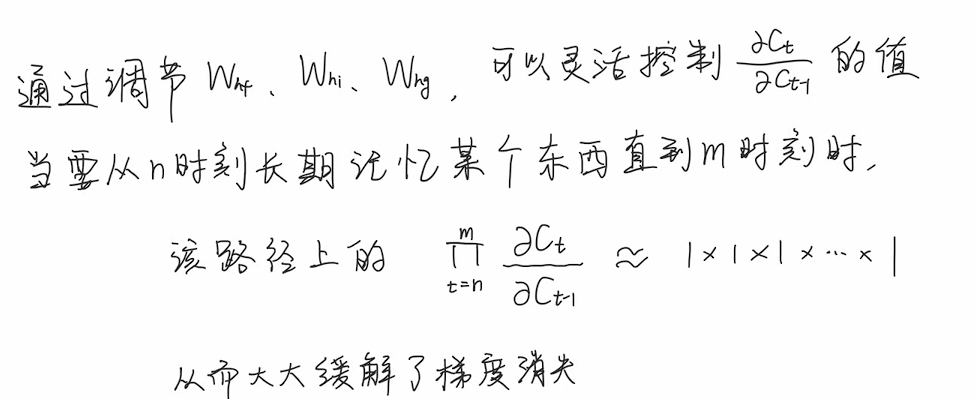 通过调节 W_hf、W_hi、W_hg，可以灵活控制 ∂C_t/∂C_{t-1} 的值
当要从n时刻长期记忆某个东西直到m时刻时，
该路径上的 ∏_{t=n}^{m} ∂C_t/∂C_{t-1} ≈ 1×1×1×…×1
从而大大缓解了梯度消失